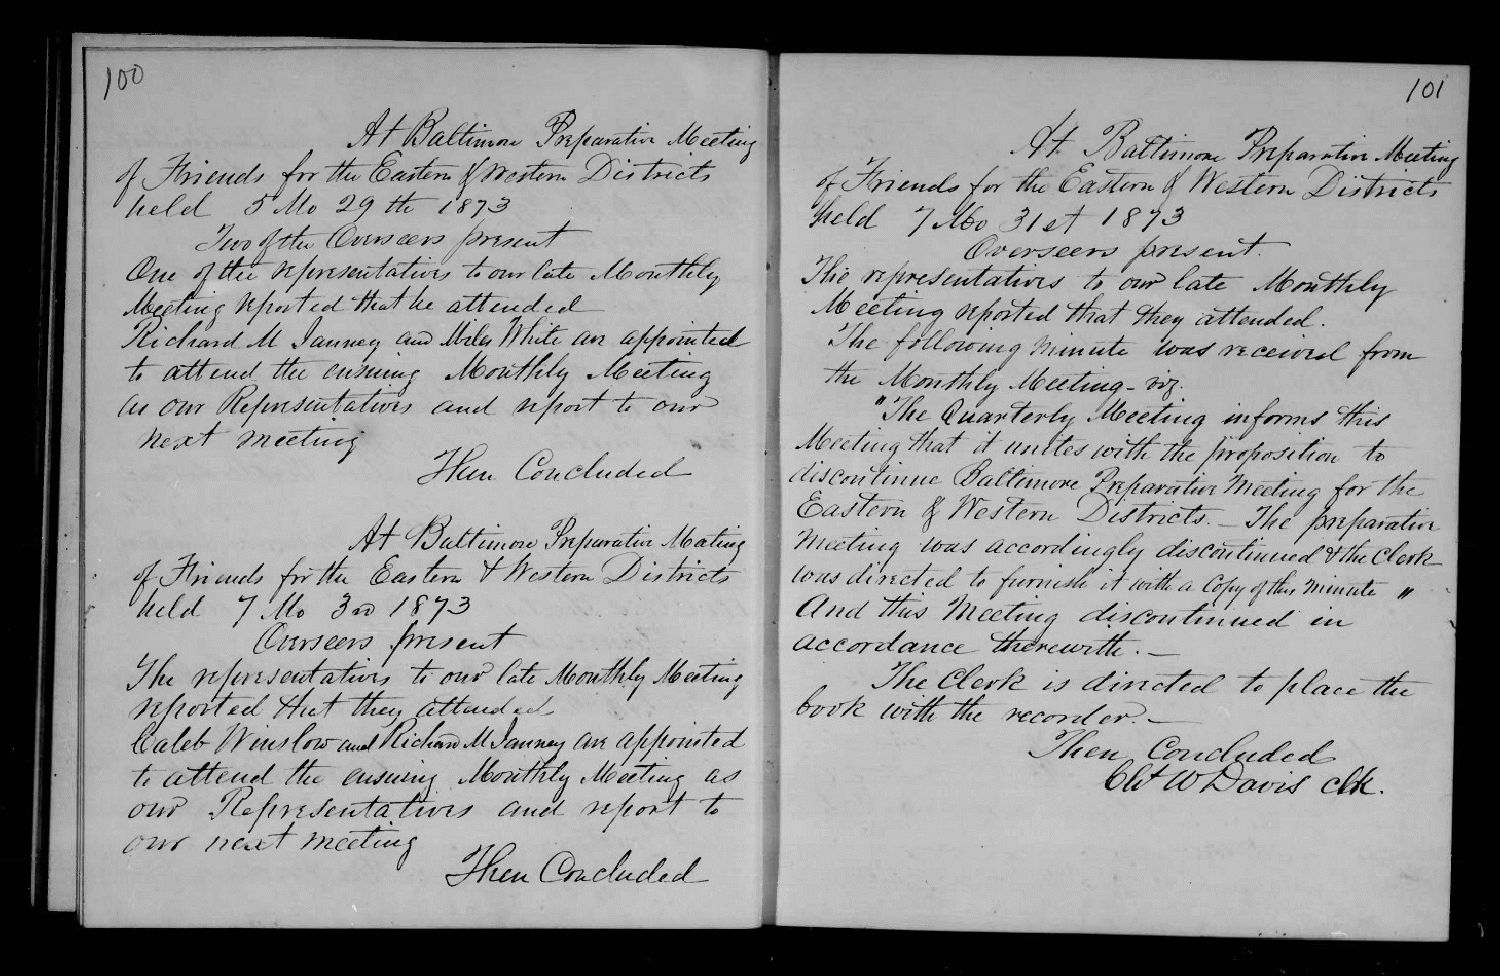 100
At Baltimore Preparative Meeting
of Friends for the Eastern & Western Districts
held 5 Mo 29th 1873
Two of the Overseers present
One of the representatives to our late Monthly
Meeting reported that he attended
Richard M Janney and Miles White are appointed
to attend the ensuing Monthly Meeting
as our Representatives and report to our
next meeting
Then Concluded
At Baltimore Preparative Meeting
of Friends for the Eastern & Western Districts
held 7 Mo 3rd 1873
Overseers present
The representatives to our late Monthly Meeting
reported that they attended
Caleb Winslow and Richard M Janney are appointed
to attend the ensuing Monthly Meeting as
our Representatives and report to
our next meeting
Then Concluded
101
At Baltimore Preparative Meeting
of Friends for the Eastern & Western Districts
held 7 Mo 31st 1873
Overseers present.
The representatives to our late Monthly
Meeting reported that they attended.
The following minute was received from
the Monthly Meeting - viz.
"The Quarterly Meeting informs this
Meeting that it unites with the proposition to
discontinue Baltimore Preparative Meeting for the
Eastern & Western Districts. - The preparative
Meeting was accordingly discontinued & the Clerk
was directed to furnish it with a Copy of this minute "
And this Meeting discontinued in
accordance therewith. -
The Clerk is directed to place the
book with the recorder. -
Then Concluded
W Davis clk.